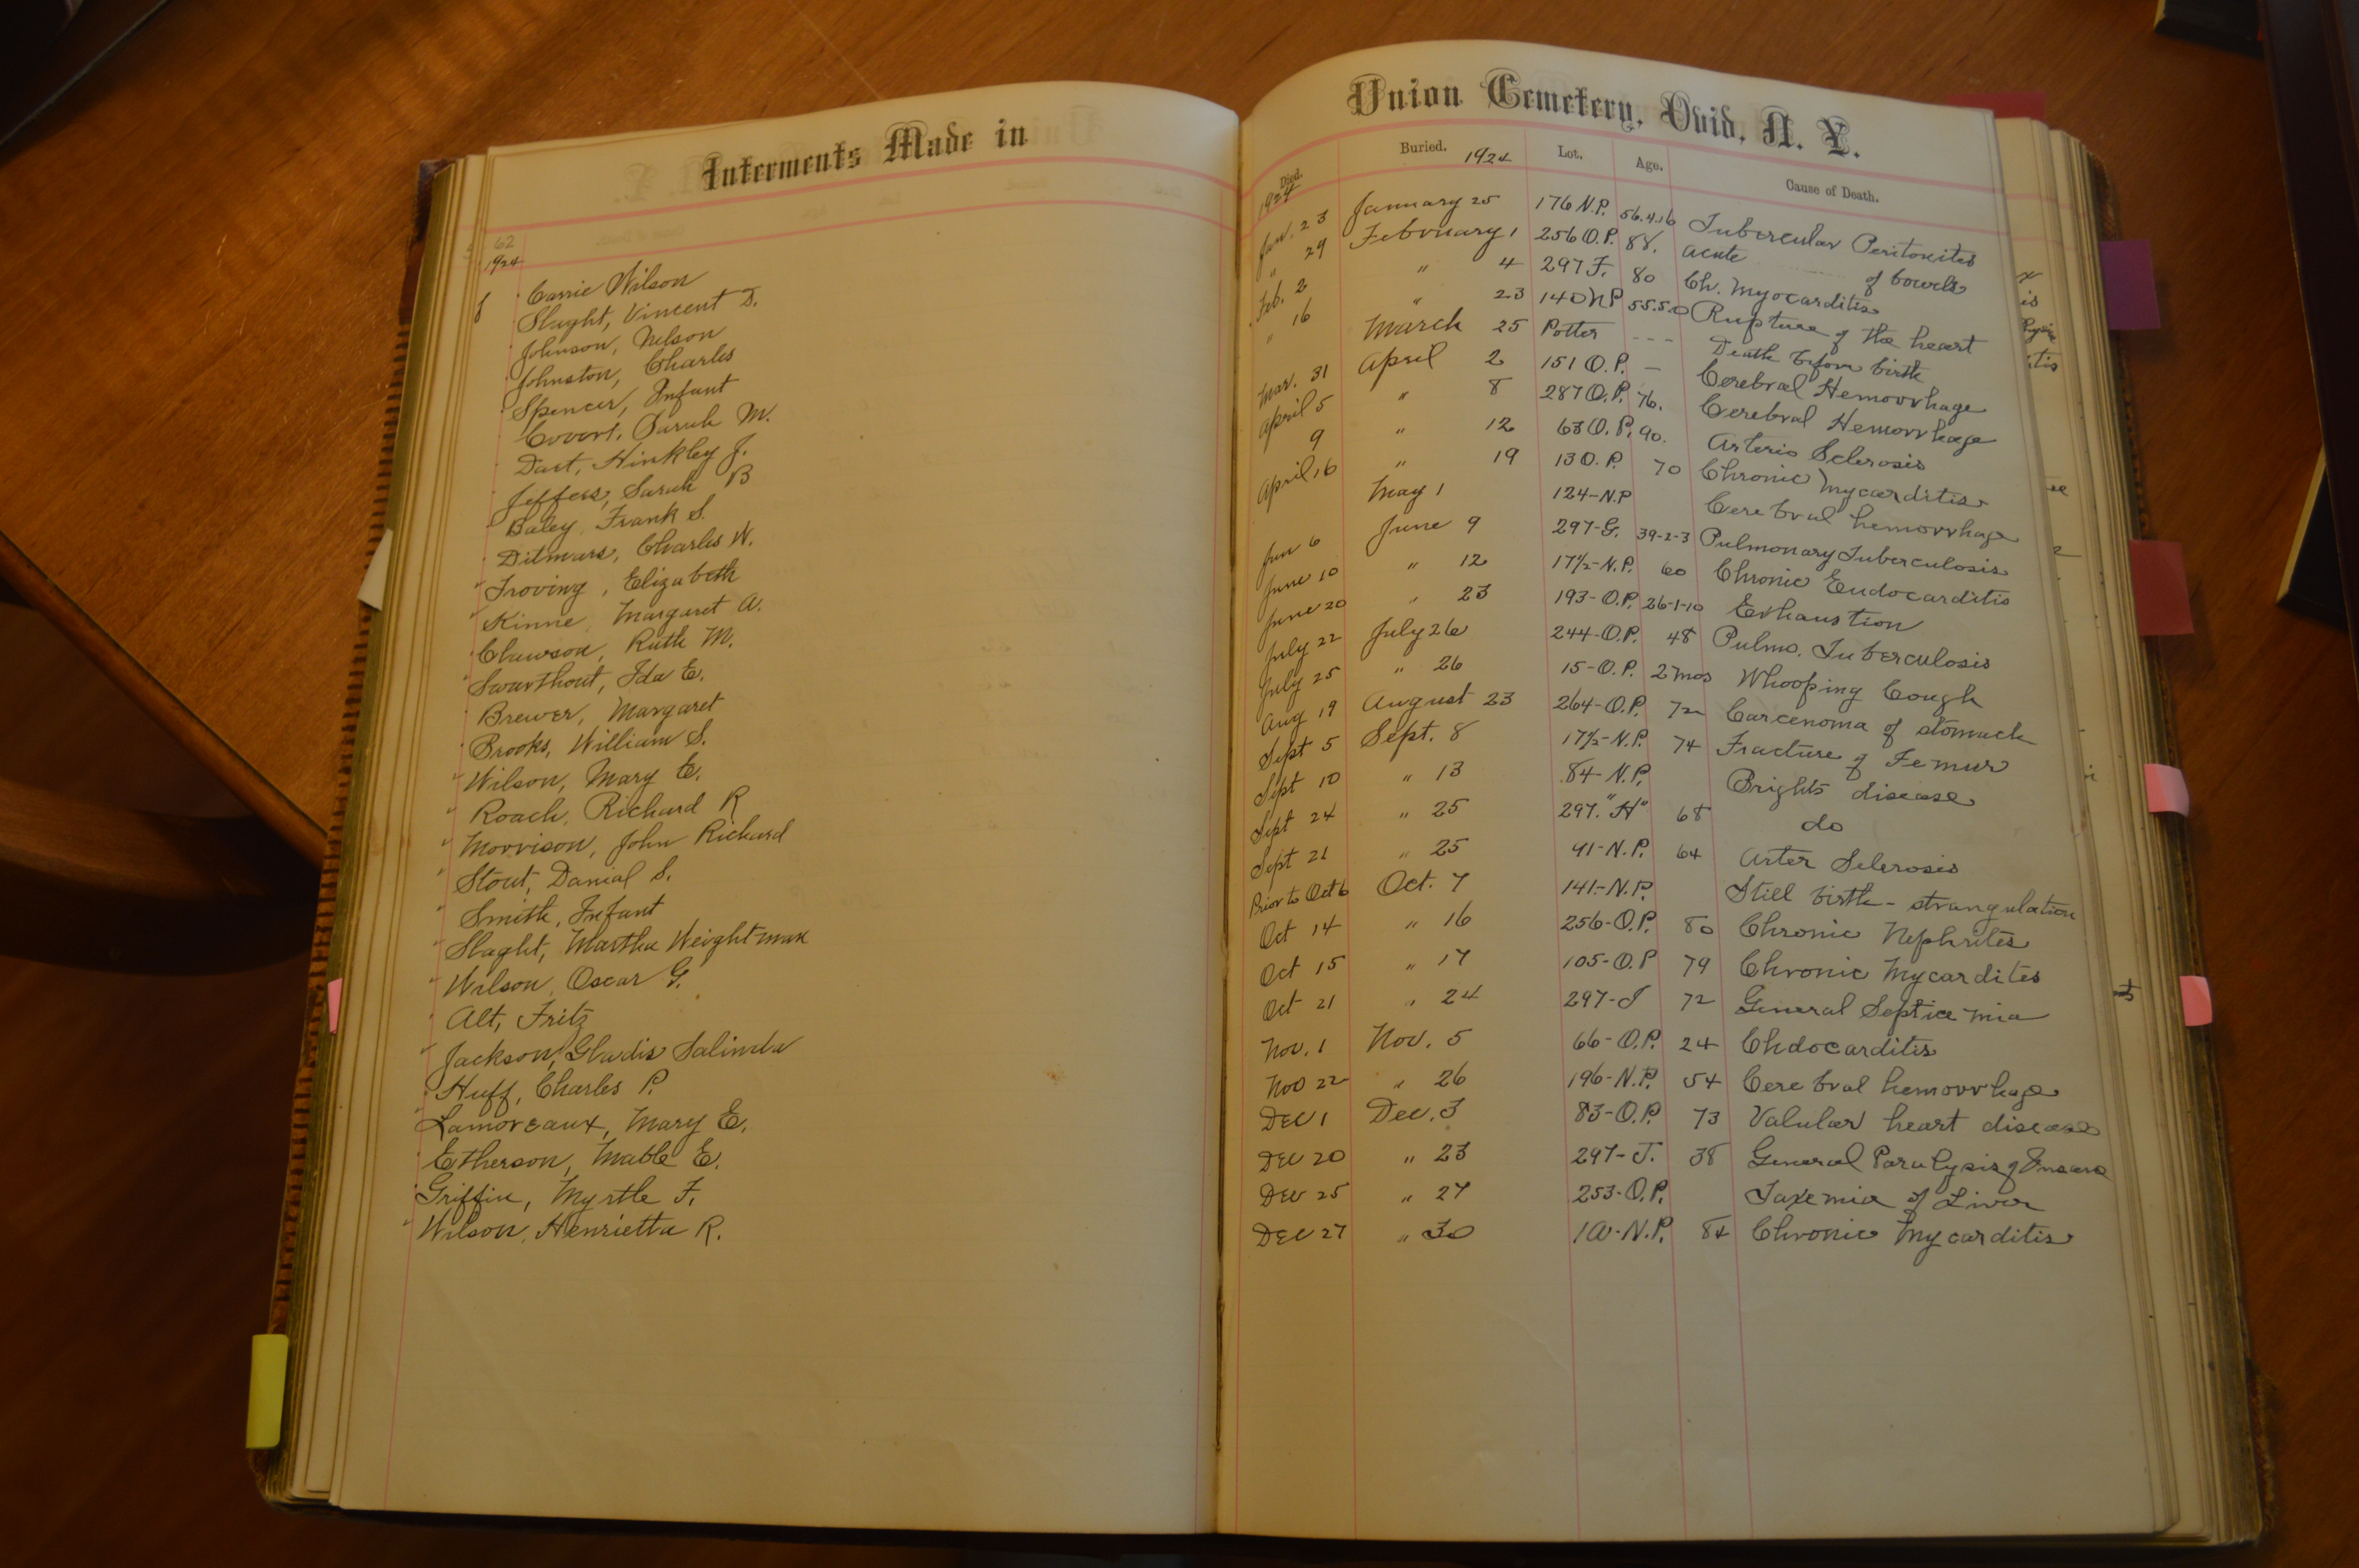 Interments Made in
62
1924
Carrie Wilson
Slaght, Vincent D.
Johnson, Nelson
Johnston, Charles
Spencer, Infant
Covert, Sarah M.
Dart, Hinkley J.
Jeffers, Sarah B
Baley, Frank S.
Ditmars, Charles W.
Troving, Elizabeth
Kinne, Margaret A.
Clawson, Ruth M.
Swarthout, Ida E.
Brewer, Margaret
Brooks, William S.
Wilson, Mary E.
Roach, Richard R
Morrison, John Richard
Stout, Danial S.
Smith, Infant
Slaght, Martha Weightman
Wilson, Oscar G.
Alt, Fritz
Jackson, Gladis Salinda
Huff, Charles P.
Lamoreaux, Mary E.
Etherson, Mable E.
Griffin, Myrtle F.
Wilson, Henrietta R.
Union Cemetery, Ovid, N. Y.
Died. Buried. Lot. Age. Cause of Death.
1924 1924
Jan. 23 January 25 176 N.P. 56.4.16 Tubercular Peritonites
" 29 February 1 256 O.P. 88. acute of bowels
Feb. 2 " 4 297 F. 80 Ch. Myocarditis
" 16 " 23 140 NP 55.5.0 Rupture of the heart
March 25 Potter - - - Death before birth
Mar. 31 April 2 151 O.P. — Cerebral Hemorrhage
April 5 " 8 287 O.P. 76. Cerebral Hemorrhage
9 " 12 63 O.P. 90. Arterio Sclerosis
April 16 " 19 13 O.P. 70 Chronic Mycarditis
May 1 124-N.P Cerebral hemorrhage
Jun 6 June 9 297-G. 39-2-3 Pulmonary Tuberculosis
June 10 " 12 17½-N.P. 60 Chronic Endocarditis
June 20 " 23 193-O.P. 26-1-10 Exhaustion
July 22 July 26 244-O.P. 48 Pulmo. Tuberculosis
July 25 " 26 15-O.P. 27mos Whooping Cough
Aug 19 August 23 264-O.P. 72 Carcenoma of stomach
Sept 5 Sept. 8 17½-N.P. 74 Fracture of Femur
Sept 10 " 13 84-N.P. Brights disease
Sept 24 " 25 297."H" 68 do
Sept 21 " 25 41-N.P. 64 Arter Selerosis
Prior to Oct 6 Oct. 7 141-N.P. Still birth - strangulation
Oct 14 " 16 256-O.P. 80 Chronic Nephrites
Oct 15 " 17 105-O.P 79 Chronic Mycardites
Oct 21 " 24 297-I 72 General Septicemia
Nov. 1 Nov. 5 66-O.P. 24 Chdocarditis
Nov 22 " 26 196-N.P. 54 Cerebral hemorrhage
Dec 1 Dec. 3 83-O.P. 73 Valular heart disease
Dec 20 " 23 297-J. 38 General Paralysis of Insane
Dec 25 " 27 253-O.P. Toxemia of Liver
Dec 27 " 30 N.P. 84 Chronic Mycarditis